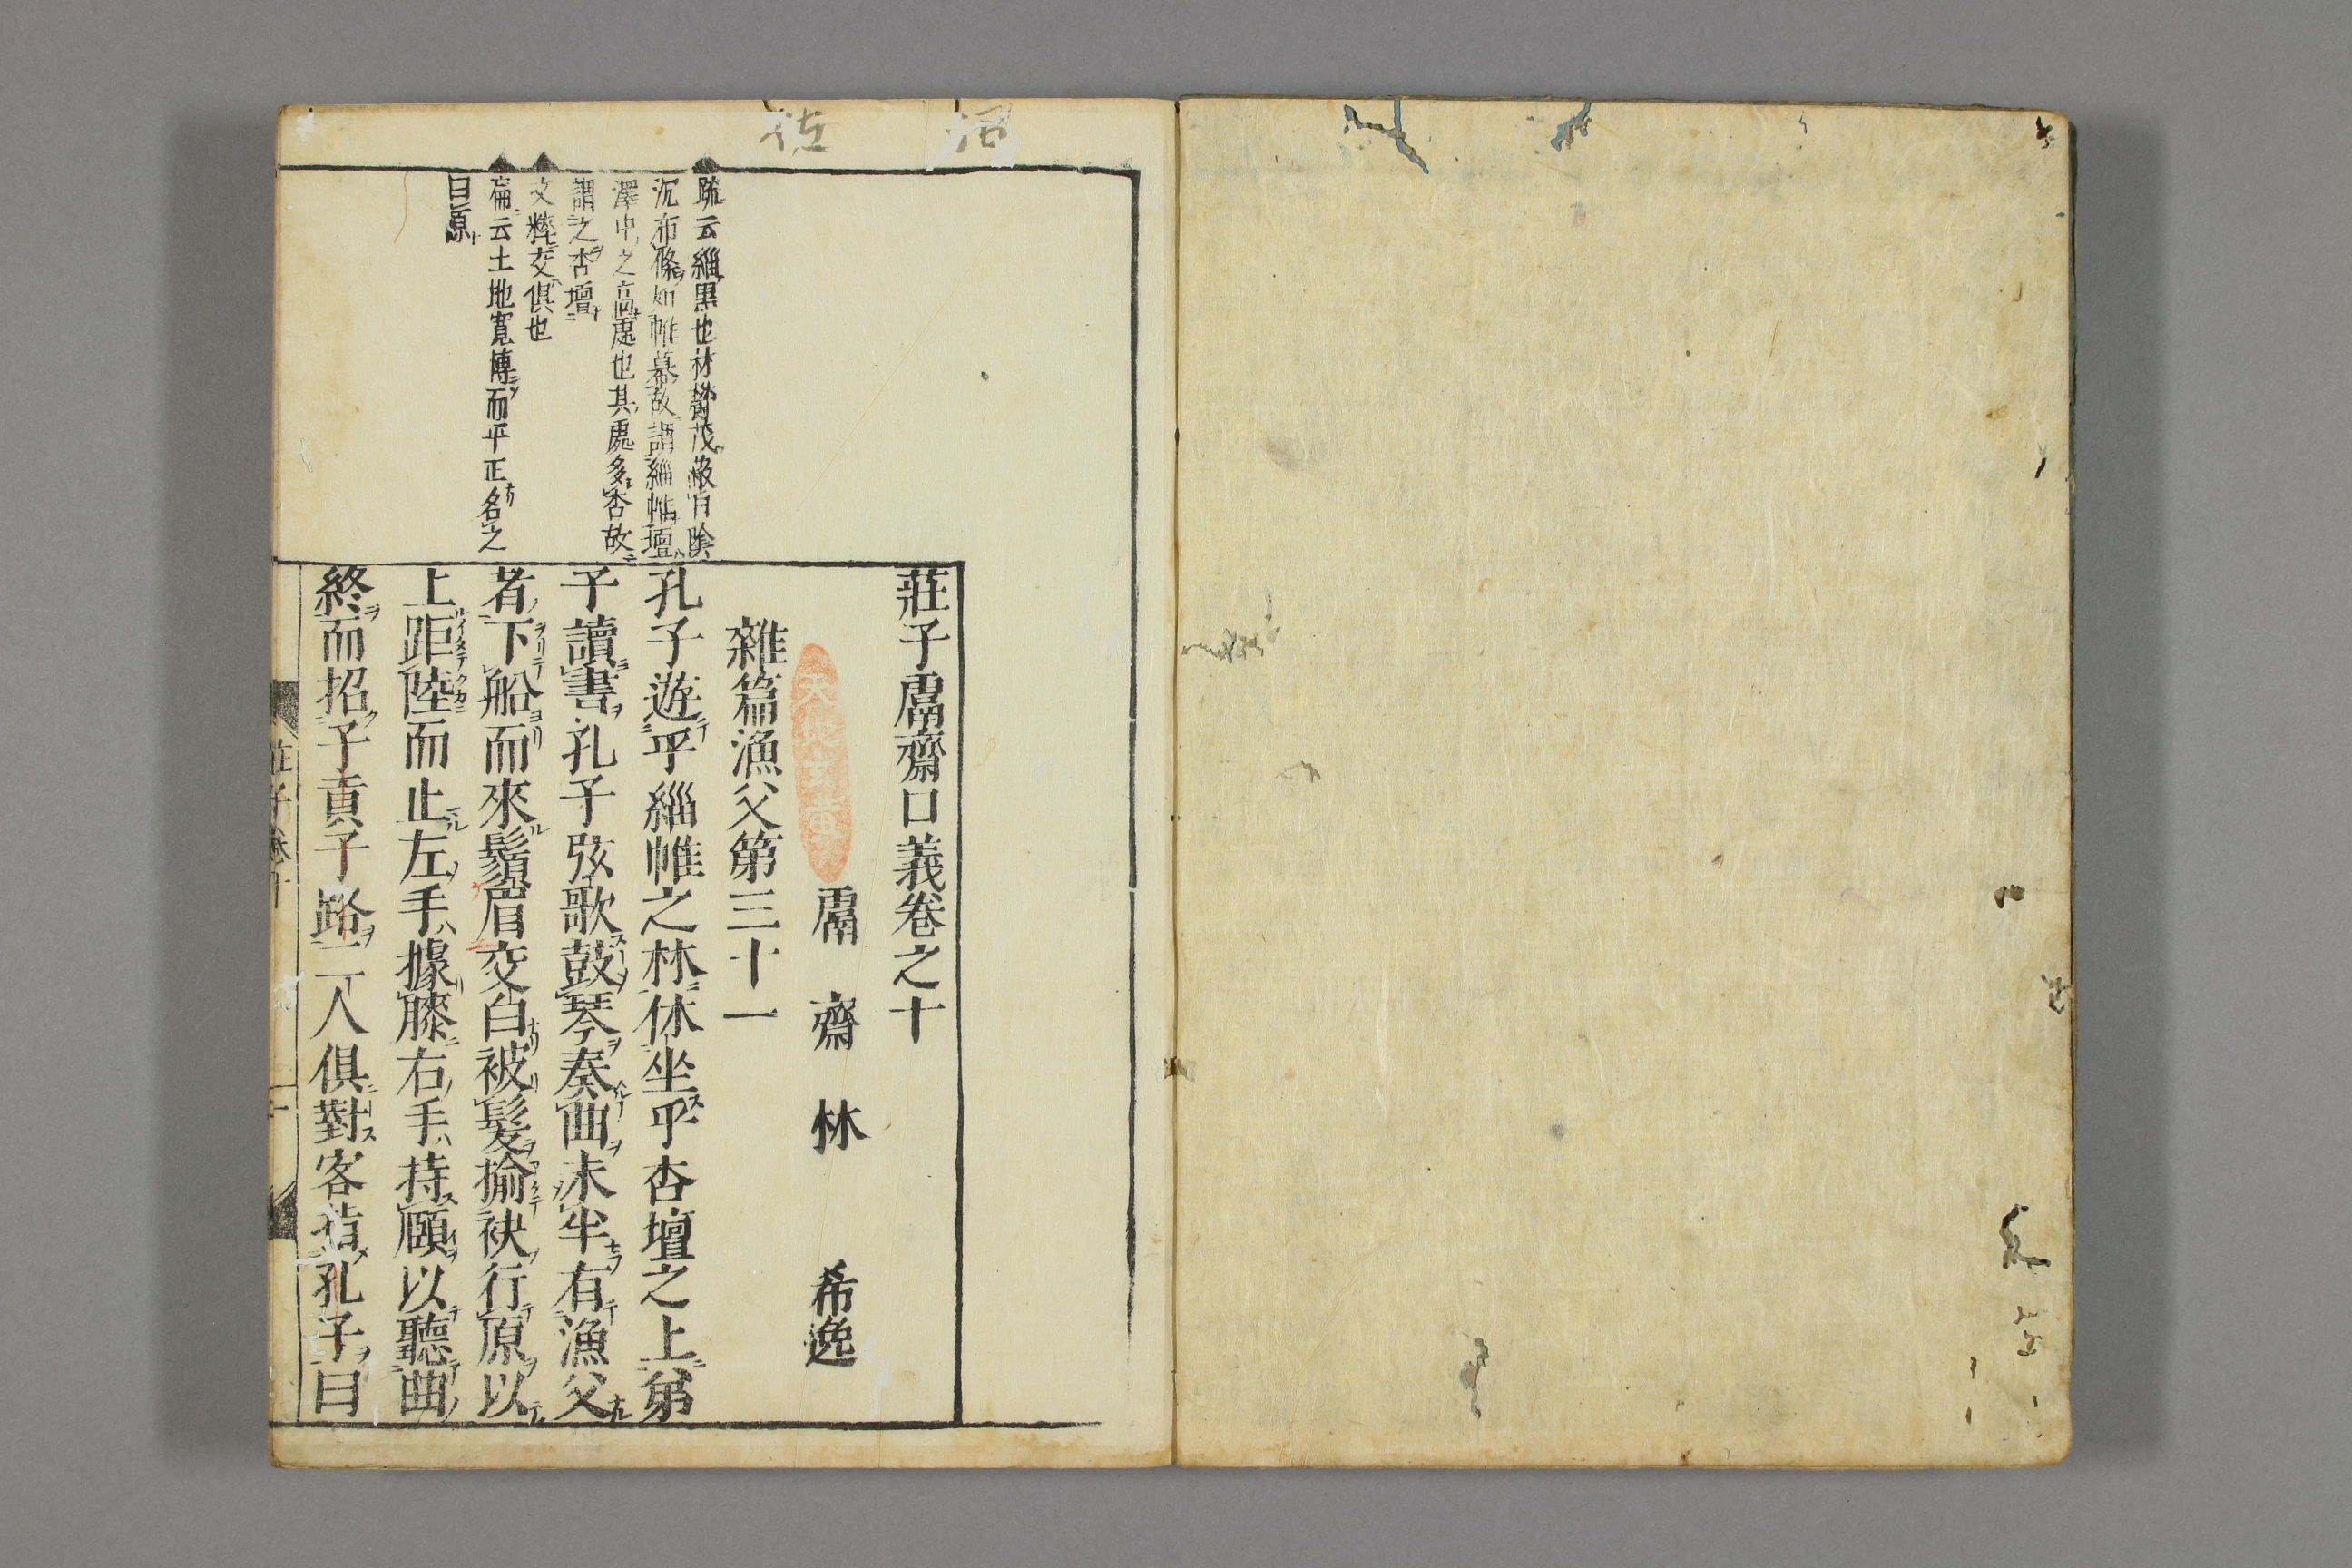 莊子鬳齋口義卷之十
鬳齋林希逸
雜篇漁父第三十一
孔子遊乎緇帷之林休坐乎杏壇之上弟
子讀書孔子弦歌鼓琴奏曲未半有漁父
者下船而來鬚眉交白被髮揄袂行原以
上距陸而止左手據膝右手持頤以聽曲
終而招子貢子路二人俱對客指孔子曰
疏云緇黒也林欝茂蔽日陰
沉布條如帷幕故謂緇帷壇
澤中之高處也其處多杏故
謂之杏壇
文粹交俱也
萹云土地寬博而平正名之
曰原
莊子卷十